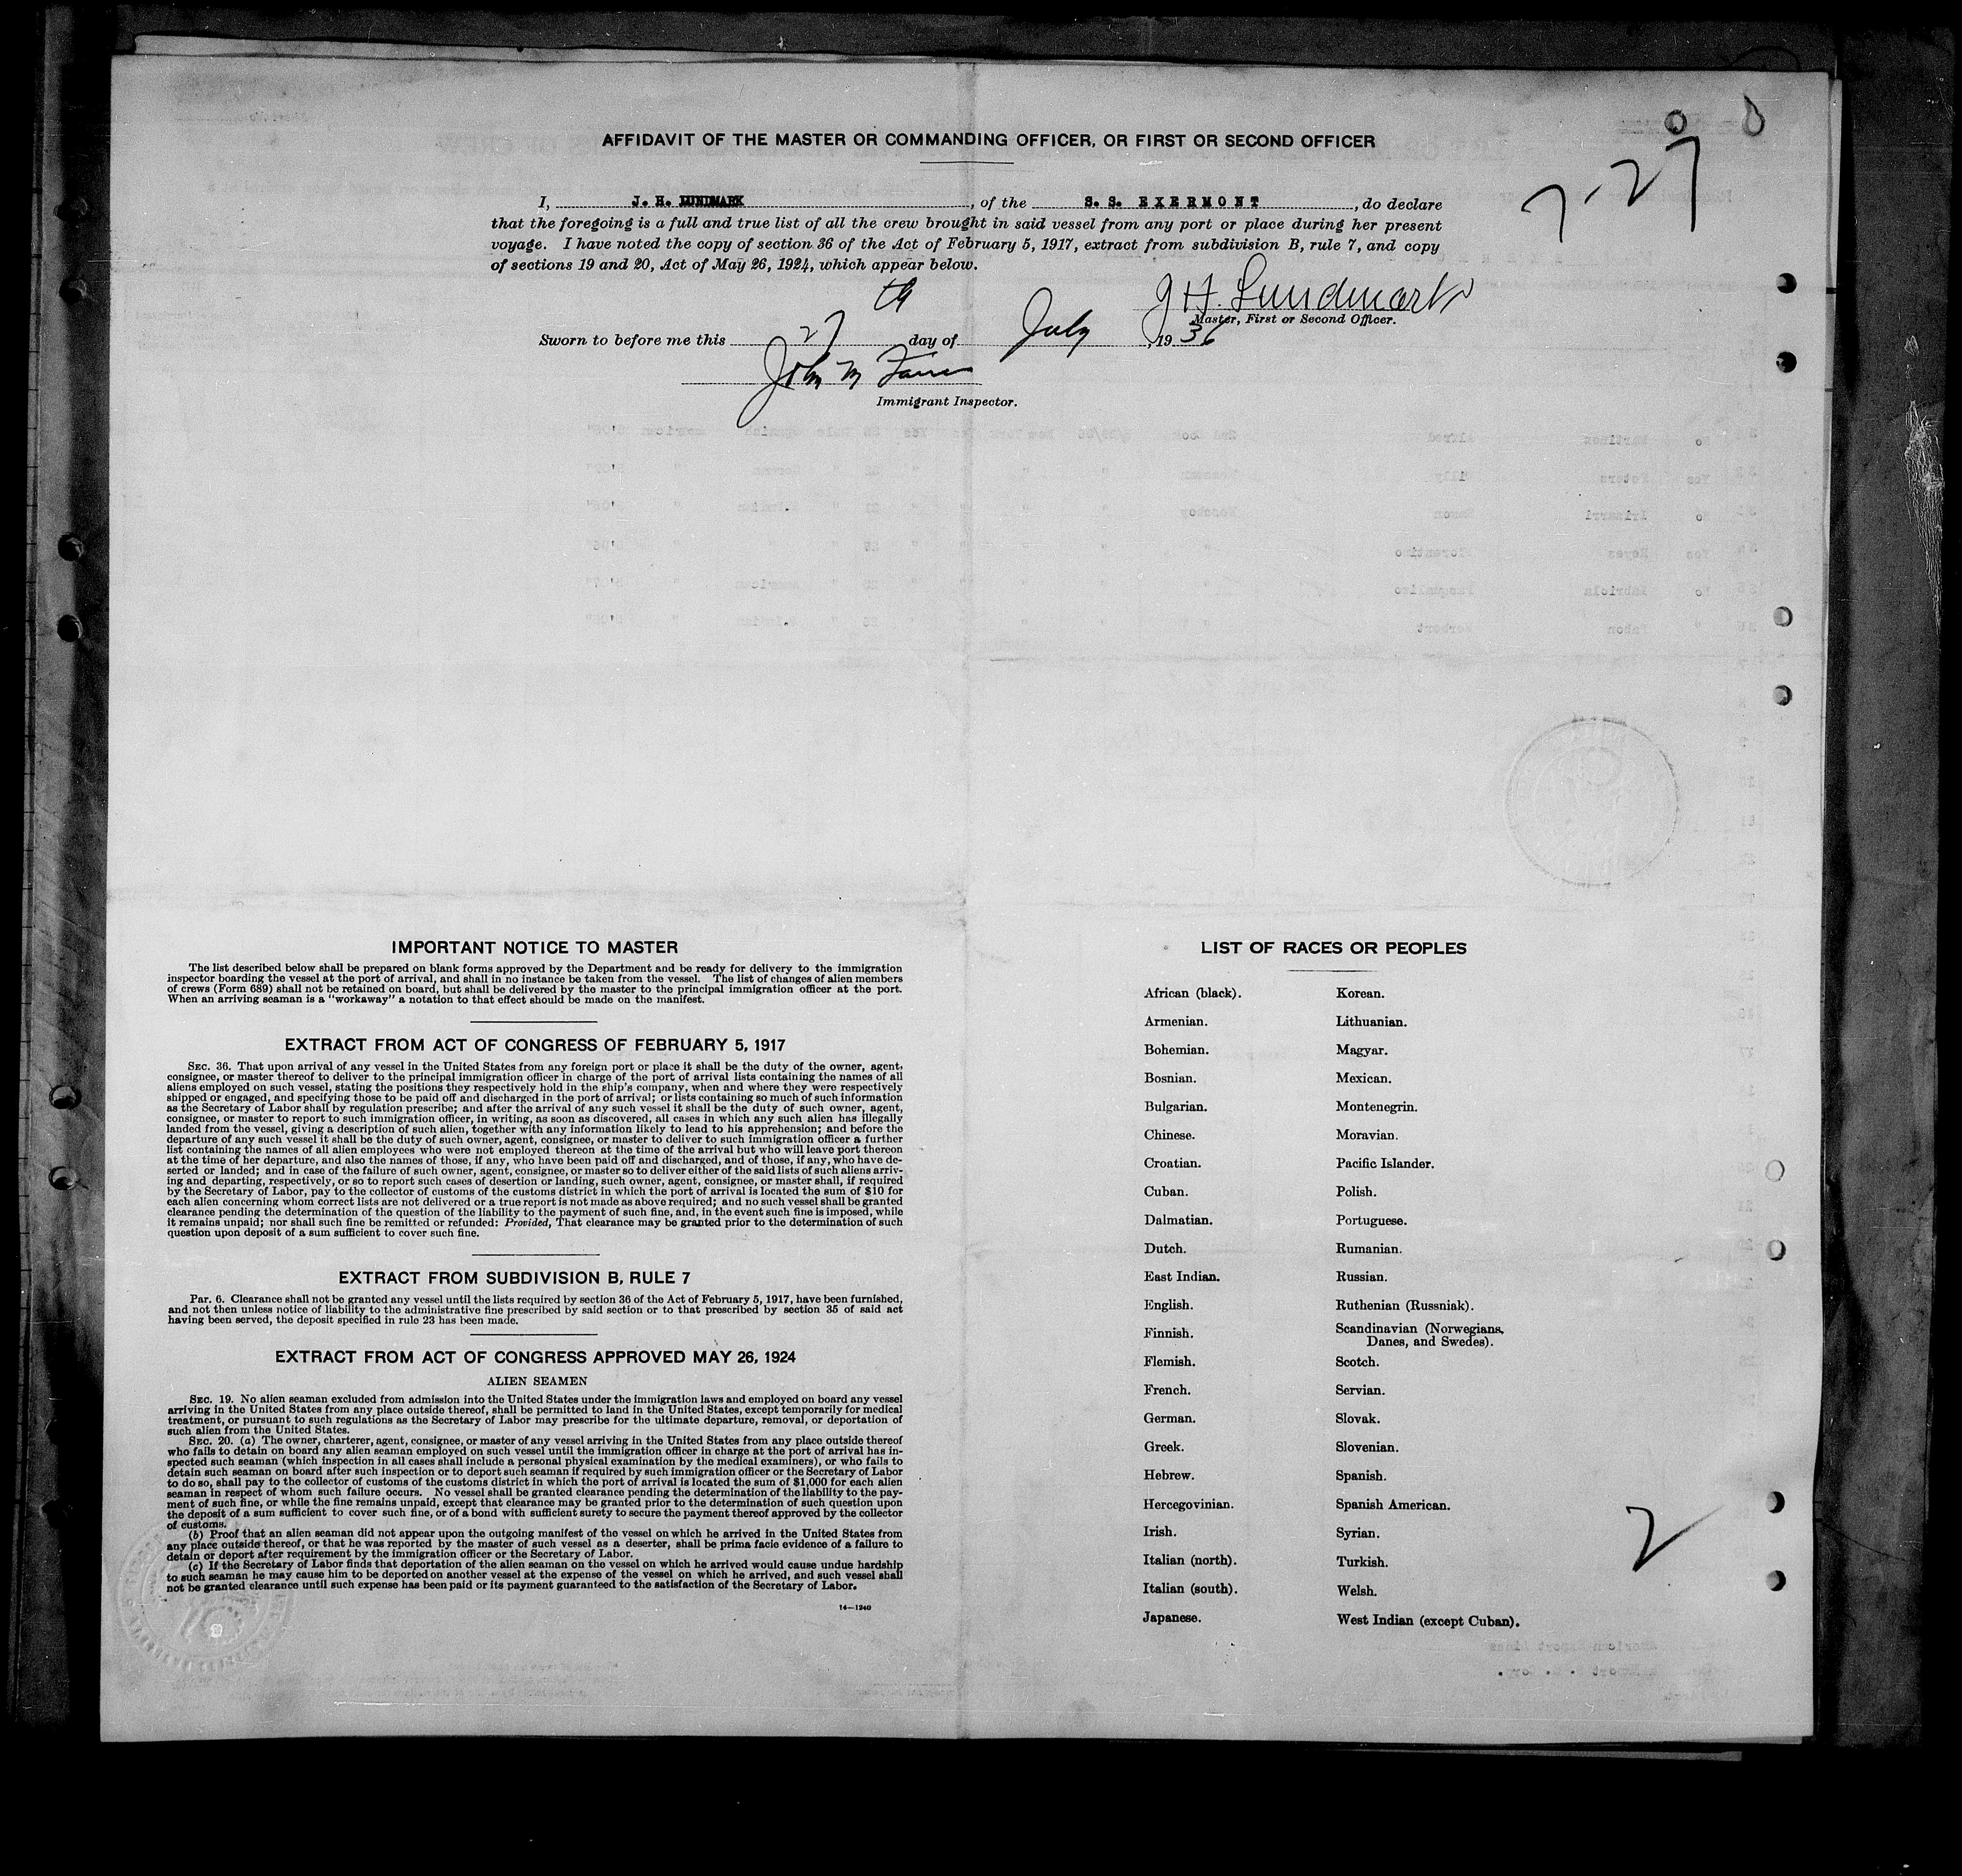 AFFIDAVIT OF THE MASTER OR COMMANDING OFFICER, OR FIRST OR SECOND OFFICER
7-27
I, J. H. LUNDMARK, of the S. S. EXERMONT, do declare
that the foregoing is a full and true list of all the crew brought in said vessel from any port or place during her present
voyage. I have noted the copy of section 36 of the Act of February 5, 1917, extract from subdivision B, rule 7, and copy
of sections 19 and 20, Act of May 26, 1924, which appear below.
J H. Lundmark
Master, First or Second Officer.
Sworn to before me this 27th day of July, 1936
John M
Immigrant Inspector.
IMPORTANT NOTICE TO MASTER
The list described below shall be prepared on blank forms approved by the Department and be ready for delivery to the immigration
inspector boarding the vessel at the port of arrival, and shall in no instance be taken from the vessel. The list of changes of alien members
of crews (Form 689) shall not be retained on board, but shall be delivered by the master to the principal immigration officer at the port.
When an arriving seaman is a "workaway" a notation to that effect should be made on the manifest.
EXTRACT FROM ACT OF CONGRESS OF FEBRUARY 5, 1917
SEC. 36. That upon arrival of any vessel in the United States from any foreign port or place it shall be the duty of the owner, agent,
consignee, or master thereof to deliver to the principal immigration officer in charge of the port of arrival lists containing the names of all
aliens employed on such vessel, stating the positions they respectively hold in the ship's company, when and where they were respectively
shipped or engaged, and specifying those to be paid off and discharged in the port of arrival; or lists containing so much of such information
as the Secretary of Labor shall by regulation prescribe; and after the arrival of any such vessel it shall be the duty of such owner, agent,
consignee, or master to report to such immigration officer, in writing, as soon as discovered, all cases in which any such alien has illegally
landed from the vessel, giving a description of such alien, together with any information likely to lead to his apprehension; and before the
departure of any such vessel it shall be the duty of such owner, agent, consignee, or master to deliver to such immigration officer a further
list containing the names of all alien employees who were not employed thereon at the time of the arrival but who will leave port thereon
at the time of her departure, and also the names of those, if any, who have been paid off and discharged, and of those, if any, who have de-
serted or landed; and in case of the failure of such owner, agent, consignee, or master so to deliver either of the said lists of such aliens arriv-
ing and departing, respectively, or so to report such cases of desertion or landing, such owner, agent, consignee, or master shall, if required
by the Secretary of Labor, pay to the collector of customs of the customs district in which the port of arrival is located the sum of $10 for
each alien concerning whom correct lists are not delivered or a true report is not made as above required; and no such vessel shall be granted
clearance pending the determination of the question of the liability to the payment of such fine, and, in the event such fine is imposed, while
it remains unpaid; nor shall such fine be remitted or refunded: Provided, That clearance may be granted prior to the determination of such
question upon deposit of a sum sufficient to cover such fine.
EXTRACT FROM SUBDIVISION B, RULE 7
PAR. 6. Clearance shall not be granted any vessel until the lists required by section 36 of the Act of February 5, 1917, have been furnished,
and not then unless notice of liability to the administrative fine prescribed by said section or to that prescribed by section 35 of said act
having been served, the deposit specified in rule 23 has been made.
EXTRACT FROM ACT OF CONGRESS APPROVED MAY 26, 1924
ALIEN SEAMEN
SEC. 19. No alien seaman excluded from admission into the United States under the immigration laws and employed on board any vessel
arriving in the United States from any place outside thereof, shall be permitted to land in the United States, except temporarily for medical
treatment, or pursuant to such regulations as the Secretary of Labor may prescribe for the ultimate departure, removal, or deportation of
such alien from the United States.
SEC. 20. (a) The owner, charterer, agent, consignee, or master of any vessel arriving in the United States from any place outside thereof
who fails to detain on board any alien seaman employed on such vessel until the immigration officer in charge at the port of arrival has in-
spected such seaman (which inspection in all cases shall include a personal physical examination by the medical examiners), or who fails to
detain such seaman on board after such inspection or to deport such seaman if required by such immigration officer or the Secretary of Labor
to do so, shall pay to the collector of customs of the customs district in which the port of arrival is located the sum of $1,000 for each alien
seaman in respect of whom such failure occurs. No vessel shall be granted clearance pending the determination of the liability to the pay-
ment of such fine, or while the fine remains unpaid, except that clearance may be granted prior to the determination of such question upon
the deposit of a sum sufficient to cover such fine, or of a bond with sufficient surety to secure the payment thereof approved by the collector
of customs.
(b) Proof that an alien seaman did not appear upon the outgoing manifest of the vessel on which he arrived in the United States from
any place outside thereof, or that he was reported by the master of such vessel as a deserter, shall be prima facie evidence of a failure to
detain or deport after requirement by the immigration officer or the Secretary of Labor.
(c) If the Secretary of Labor finds that deportation of the alien seaman on the vessel on which he arrived would cause undue hardship
to such seaman he may cause him to be deported on another vessel at the expense of the vessel on which he arrived, and such vessel shall
not be granted clearance until such expense has been paid or its payment guaranteed to the satisfaction of the Secretary of Labor.
14—1240
LIST OF RACES OR PEOPLES
African (black).
Armenian.
Bohemian.
Bosnian.
Bulgarian.
Chinese.
Croatian.
Cuban.
Dalmatian.
Dutch.
East Indian.
English.
Finnish.
Flemish.
French.
German.
Greek.
Hebrew.
Hercegovinian.
Irish.
Italian (north).
Italian (south).
Japanese.
Korean.
Lithuanian.
Magyar.
Mexican.
Montenegrin.
Moravian.
Pacific Islander.
Polish.
Portuguese.
Rumanian.
Russian.
Ruthenian (Russniak).
Scandinavian (Norwegians,
Danes, and Swedes).
Scotch.
Servian.
Slovak.
Slovenian.
Spanish.
Spanish American.
Syrian.
Turkish.
Welsh.
West Indian (except Cuban).
2